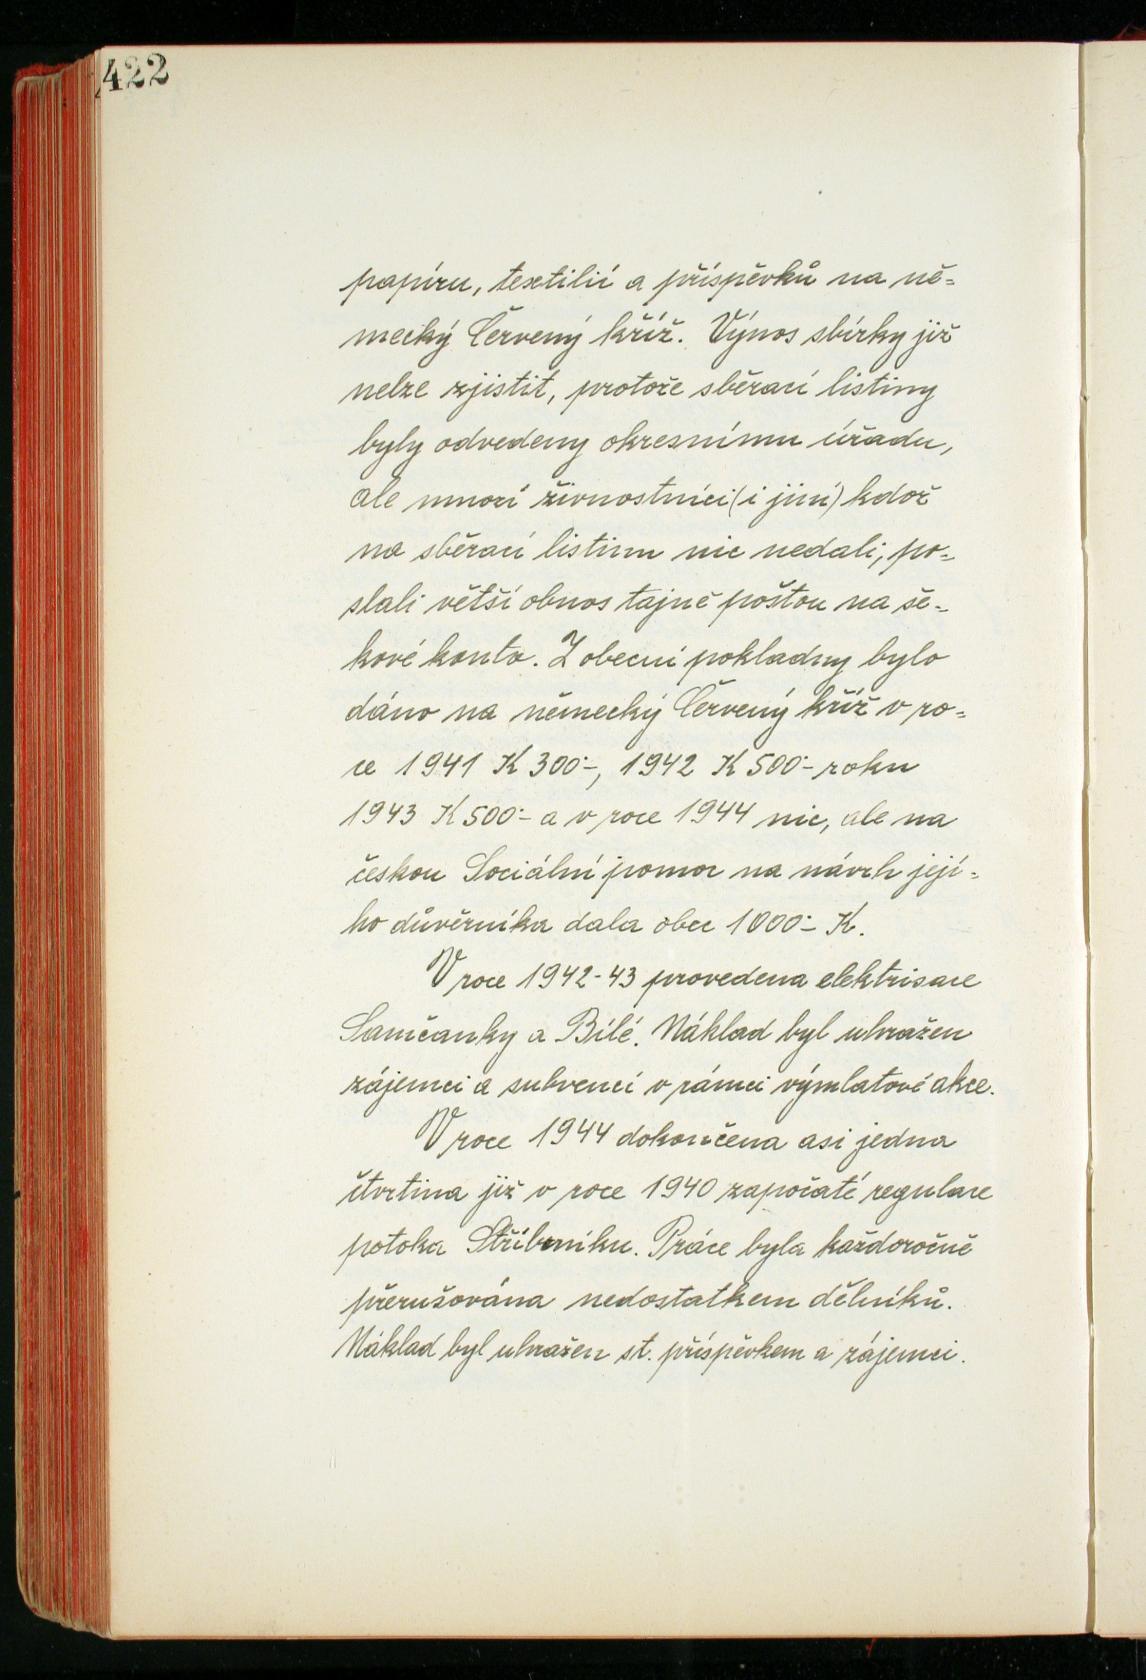 422
papíru, textilií a příspěvků na ně-
mecký Červený kříž. Výnos sbírky již
nelze zjistit, protože sběrací listiny
byly odvedeny okresnímu úřadu,
ale mnozí živnostníci (i jiní) kdož
na sběrací listinu nic nedali, po-
slali větší obnos tajně poštou na še-
kové konto. Z obecní pokladny bylo
dáno na německý Červený kříž v ro-
ce 1941 K 300·-, 1942 K 500·- roku
1943 K 500·- a v roce 1944 nic, ale na
českou Sociální pomoc na návrh její-
ho důvěrníka dala obec 1000·- K.
V roce 1942-43 provedena elektrisace
Samčanky a Bílé. Náklad byl uhražen
zájemci a subvencí v rámci výmlatové akce.
V roce 1944 dokončena asi jedna
čtvrtina již v roce 1940 započaté regulace
potoka Stříbrníku. Práce byla každoročně
přerušována nedostatkem dělníků.
Náklad byl uhražen st. příspěvkem a zájemci.